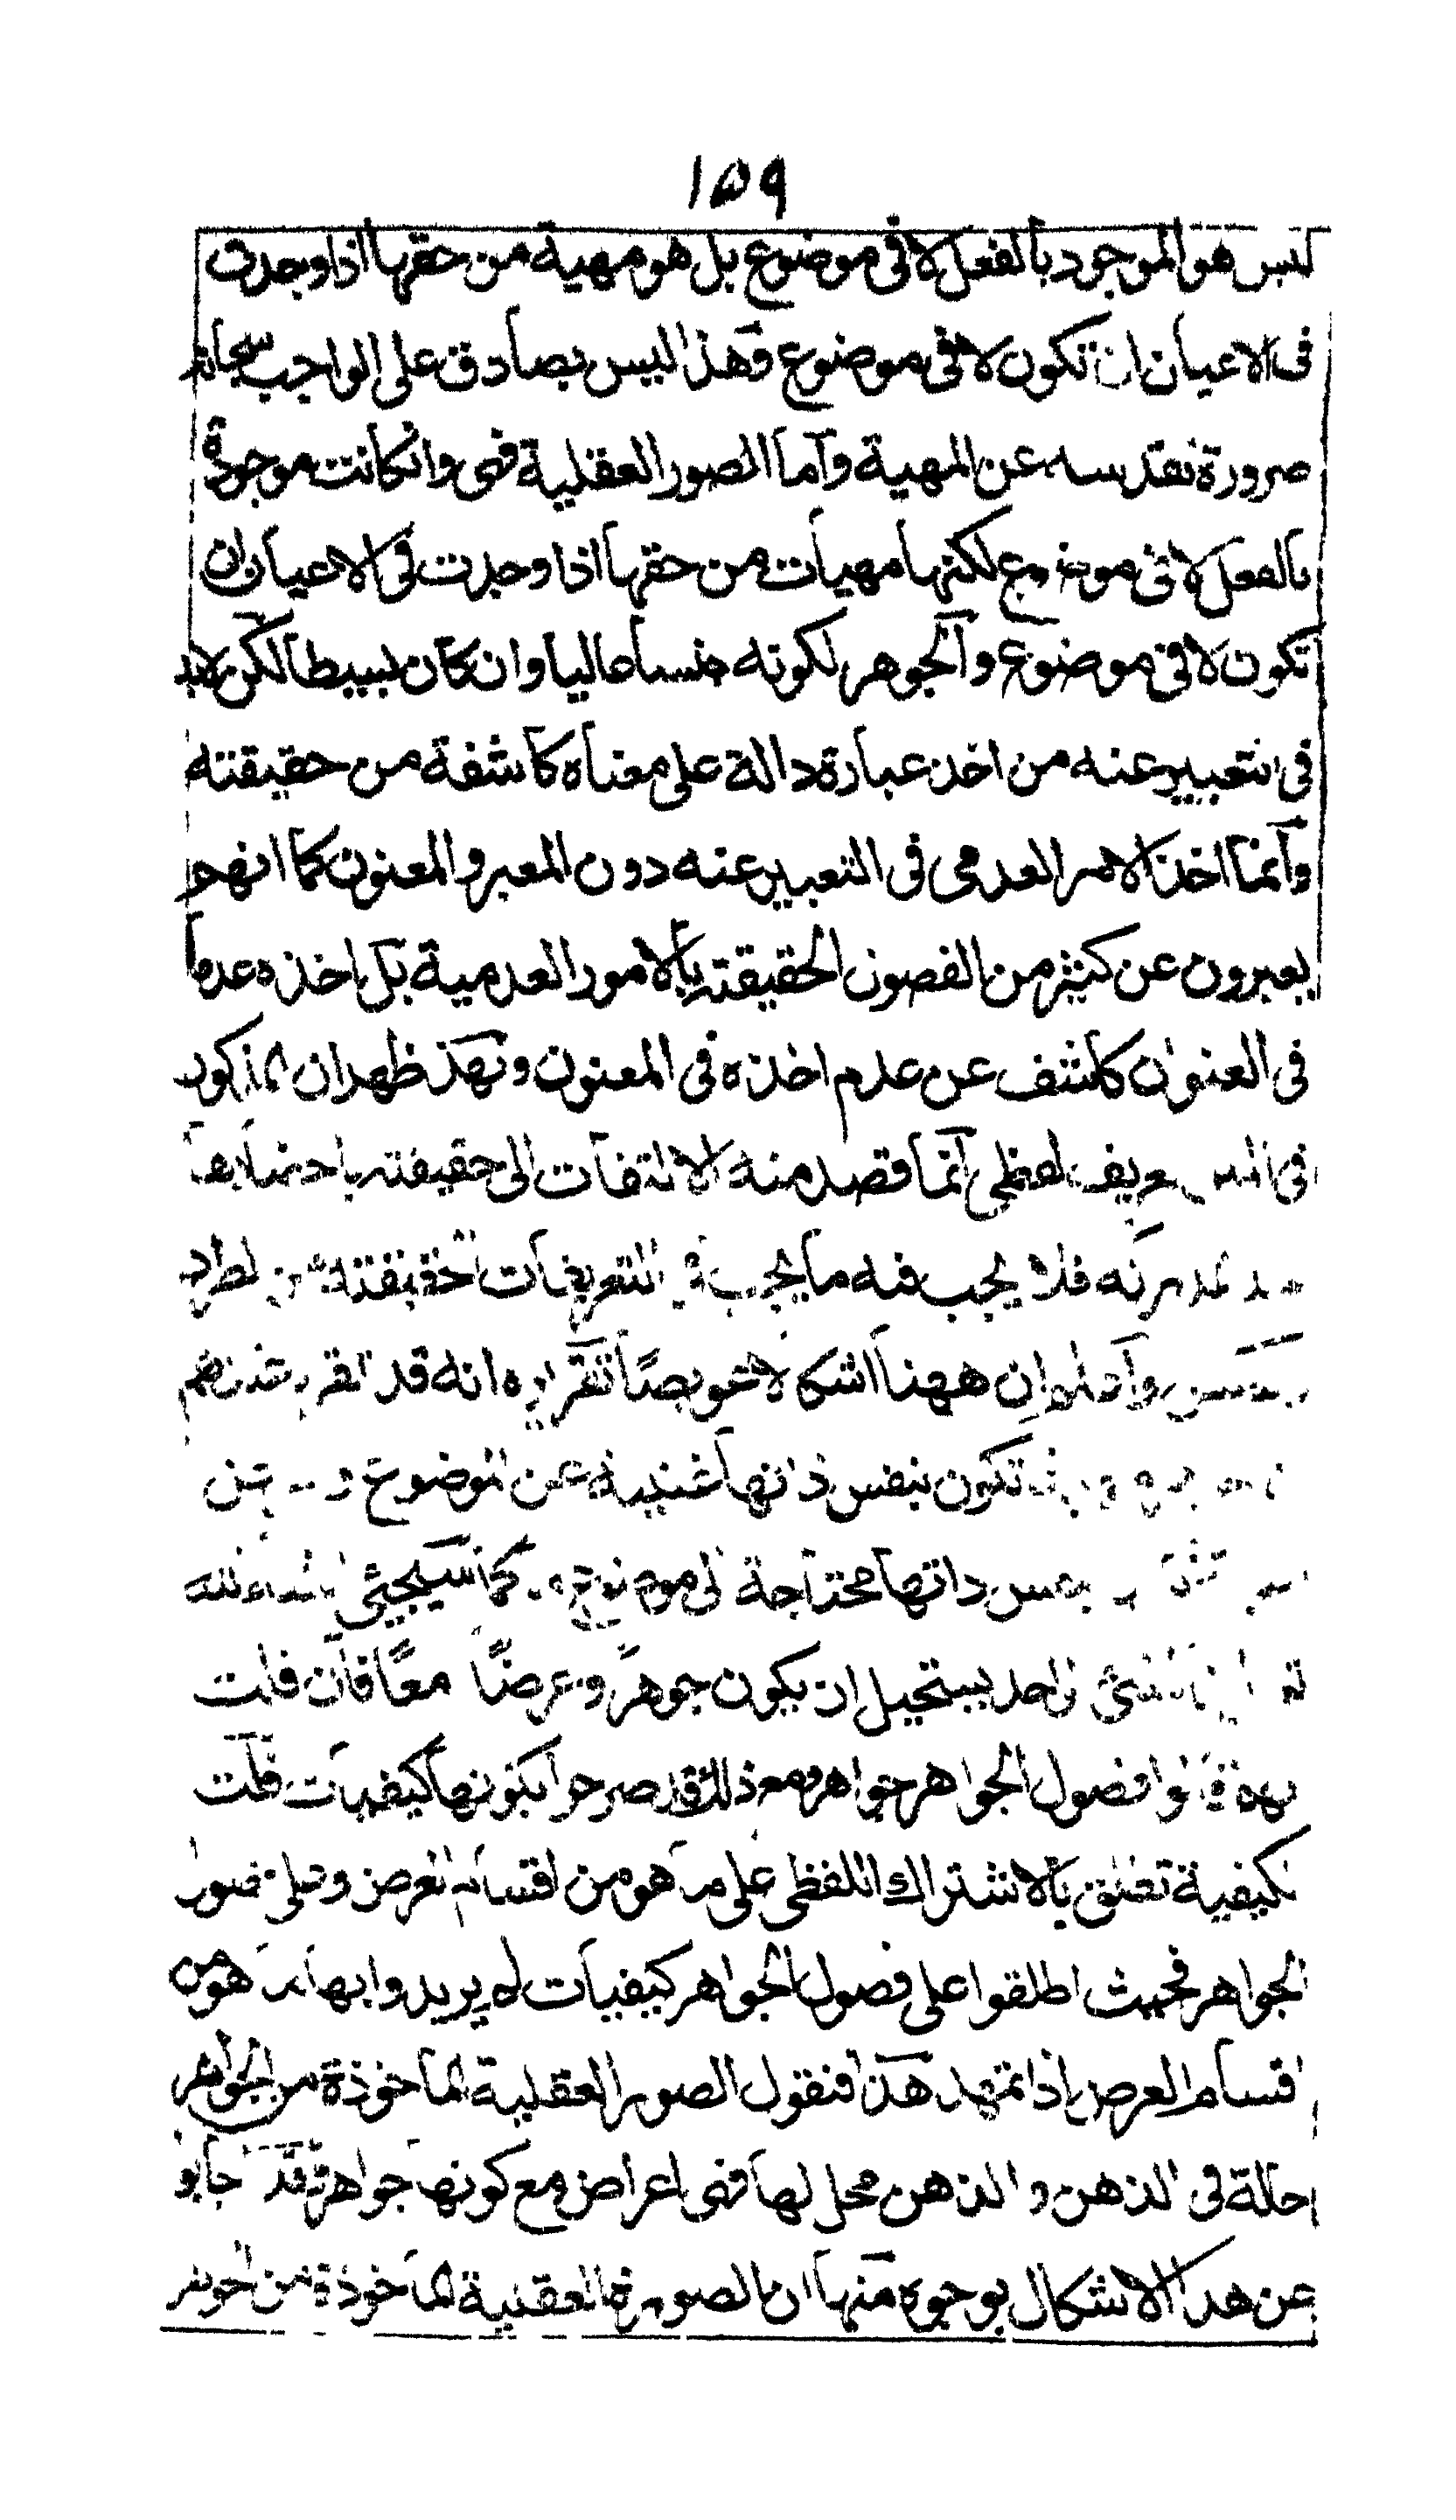 ١٥٩
ليس هو الموجود بالفعل لا فى موضوع بل هو مهية من حقها اذا وجدت
فى الاعيان ان تكون لا فى موضوع وهذا ليس بصادق على الواجب سبحانه
ضرورة تقدسه عن المهية وأما الصور العقلية فهى وانكانت موجودة
بالفعل لا فى موضوع لكنها مهيات من حقها اذا وجدت فى الاعيان ان
تكون لا فى موضوع والجوهر لكونه جنسا عاليا وان كان بسيطا لكن لابد
فى التعبير عنه من اخذ عبارة دالة على معناه كاشفة من حقيقته
وانما اخذ الامر العدمى فى التعبير عنه دون المعبر والمعنون كما انهم
يعبرون عن كثير من الفصول الحقيقته بالامور العدمية بل اخذه عدما
فى العنوان كاشف عن عدم اخذه فى المعنون وبهذا ظهر ان المذكور
فى تعريف لفظى انما قصد منه الالتفات الى حقيقته
فلا يجب فيه ما يجب فى التعريفات الحقيقته من الطرد
ان ههنا اشكالا عويصا تقريره انه قد تقرر عندهم
تكون بنفس ذاتها غنية عن الموضوع
ذاتها محتاجة الى موضوع كما سيجيئ انشاء الله
واحد يستحيل ان يكون جوهرا وعرضا معا فان قلت
فصول الجواهر جواهر ومع ذلك قد صرحوا بكونها كيفيات قلت
الكيفية تطلق بالاشتراك اللفظى على ما هو من اقسام العرض وعلى فصول
الجواهر فحيث اطلقوا على فصول الجواهر كيفيات لم يريدوا بها ما هو من
اقسام العرض اذا تمهد هذا فنقول الصور العقلية الماخوذة من الجواهر
حالة فى الذهن والذهن محل لها فهى اعراض مع كونها جواهر فقد اجابوا
عن هذا الاشكال بوجوه منها ان الصورة العقلية الماخوذة من الجوهر